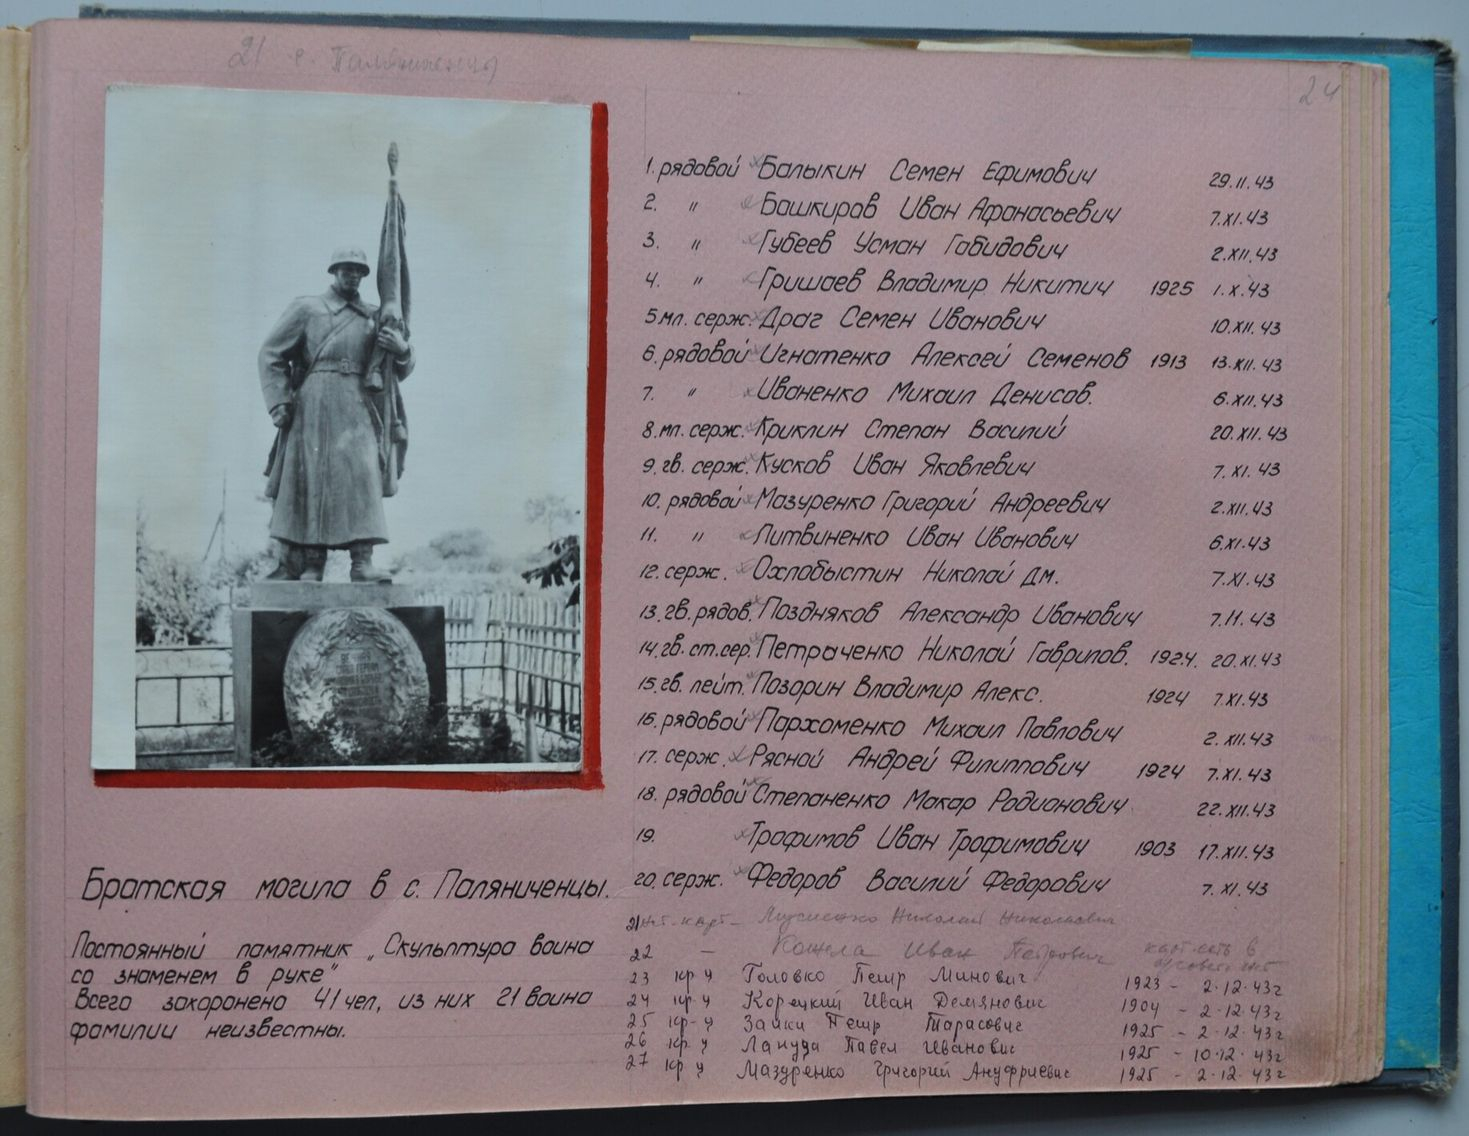 21 с.
24
1. рядовой Балыкин Семен Ефимович 29.11.43
2. " Башкиров Иван Афанасьевич 7.XI.43
3. " Губеев Усман Габидович 2.XII.43
4. " Гришаев Владимир Никитич 1925 1.X.43
5 мл. серж. Драг Семен Иванович 10.XII.43
6. рядовой Игнатенко Алексей Семенов 1913 13.XII.43
7. " Иваненко Михаил Денисов. 6.XII.43
8. мл. серж. Криклин Степан Василий 20.XII.43
9. гв. серж. Кусков Иван Яковлевич 7.XI.43
10. рядовой Мазуренко Григорий Андреевич 2.XII.43
11. " Литвиненко Иван Иванович 6.XI.43
12. серж. Охлобыстин Николай Дм. 7.XI.43
13. гв. рядов. Поздняков Александр Иванович 7.11.43
14. гв. ст. сер. Петраченко Николай Гаврилов. 1924. 20.XI.43
15. гв. лейт. Позорин Владимир Алекс. 1924 7.XI.43
16. рядовой Пархоменко Михаил Павлович 2.XII.43
17. серж. Рясной Андрей Филиппович 1924 7.XI.43
18. рядовой Степаненко Макар Родионович 22.XII.43
19. Трофимов Иван Трофимович 1903 17.XII.43
20. серж. Федоров Василий Федорович 7.XI.43
21 Николай Николаевич
22 — Иван Петрович
23 кр-ц Головко Петр Минович 1923 - 2.12.43г
24 кр-ц Корецкий Иван Демянович 1904 - 2.12.43г
25 кр-ц Заика Петр Тарасович 1925 - 2.12.43г
26 кр-ц Лапуда Павел Иванович 1925 - 10.12.43г
27 кр-ц Мазуренко Григорий Ануфриевич 1925 - 2.12.43г
Братская могила в с. Паляниченцы.
Постоянный памятник „Скульптура воина
со знаменем в руке"
Всего захоронено 41 чел, из них 21 воина
фамилии неизвестны.